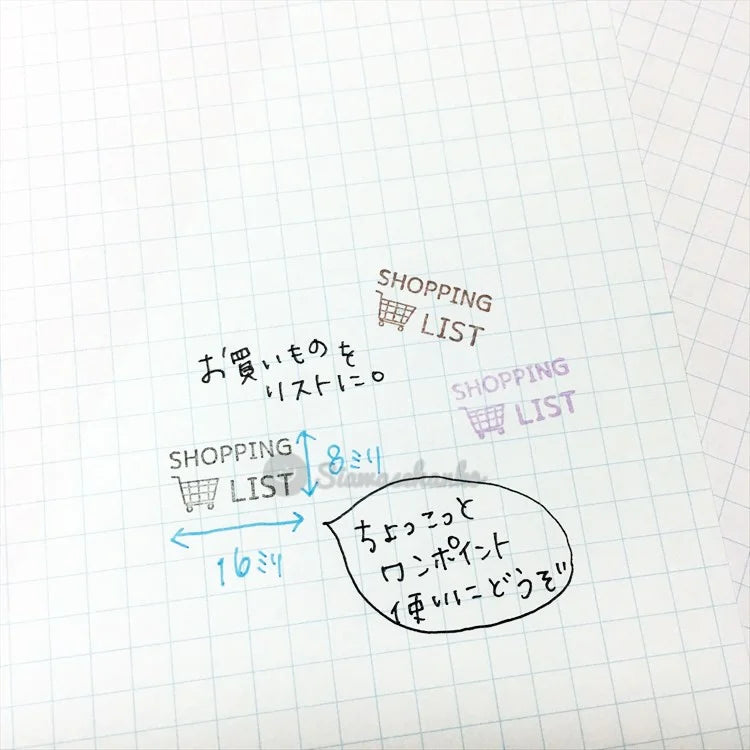 SHOPPING
LIST
お買いものを
リストに。
SHOPPING
LIST
SHOPPING
LIST
8ミリ
16ミリ
ちょっこっと
ワンポイント
使いにどうぞ